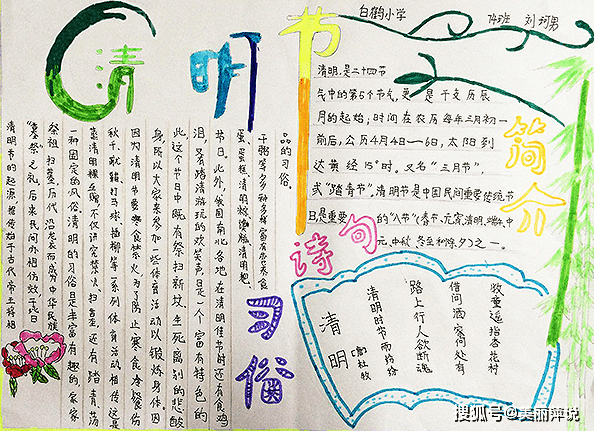 清明节
白鹤小学 14班 刘珂男
清明,是二十四节
气中的第5个节气,更是干支历辰
月的起始;时间在农历每年三月初一
前后,公历4月4日—6日,太阳到
达黄经15°时。又名“三月节”,
或“踏青节”。清明节是中国民间重要传统节
日,是重要的“八节”(春节,元宵,清明,端午,中
元,中秋,冬至和除夕)之一。
简介
清明节的起源,据传始于古代帝王将相
“墓祭”之礼,后来民间亦相仿效,于此日
祭祖扫墓,历代沿袭而成为中华民族
一种固定的风俗。清明的习俗是丰富有趣的,家家
蒸清明粿互赠,不仅讲究禁火、扫墓,还有踏青、荡
秋千、蹴鞠、打马球、插柳等一系列体育活动。相传这是
因为清明节要寒食禁火,为了防止寒食冷餐伤
身,所以大家来参加一些体育活动,以锻炼身体。因
此,这个节日中既有祭扫新坟,生死离别的悲酸
泪,又有踏清游玩的欢笑声,是一个富有特色的
节日。此外,我国南北各地在清明佳节时还有食鸡
蛋、蛋糕、清明粽、馍糍、清明粑、
干粥等多种多样富有营养食
品的习俗。
习俗
诗句
清明
(唐)杜牧
清明时节雨纷纷
路上行人欲断魂
借问酒家何处有
牧童遥指杏花村
搜狐号@美丽萍说